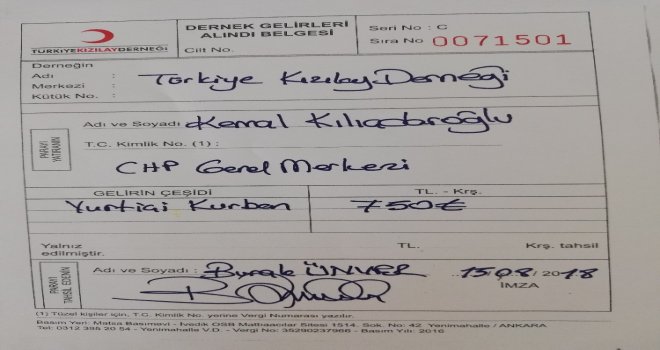 TÜRKİYEKIZILAYDERNEĞİ
DERNEK GELİRLERİ
ALINDI BELGESİ
Cilt No.
Seri No : C
Sıra No 0071501
Derneğin
Adı : Türkiye Kızılay Derneği
Merkezi :
Kütük No. :
PARAYI YATIRANIN
Adı ve Soyadı : Kemal Kılıçdaroğlu
T.C. Kimlik No. (1) :
CHP Genel Merkezi
GELİRİN ÇEŞİDİ TL. - Krş.
Yurtiçi Kurban 750₺
Yalnız TL. Krş. tahsil
edilmiştir.
PARAYI TAHSİL EDENİN
Adı ve Soyadı : Burak ÜNVER 15.08/2018
İMZA
(1) Tüzel kişiler için, T.C. Kimlik No. yerine Vergi Numarası yazılır.
Basım Yeri: Matsa Basımevi - İvedik OSB Matbaacılar Sitesi 1514. Sok. No: 42 Yenimahalle / ANKARA
Tel: 0312 395 20 54 - Yenimahalle V.D. - Vergi No: 35290237966 - Basım Yılı: 2016